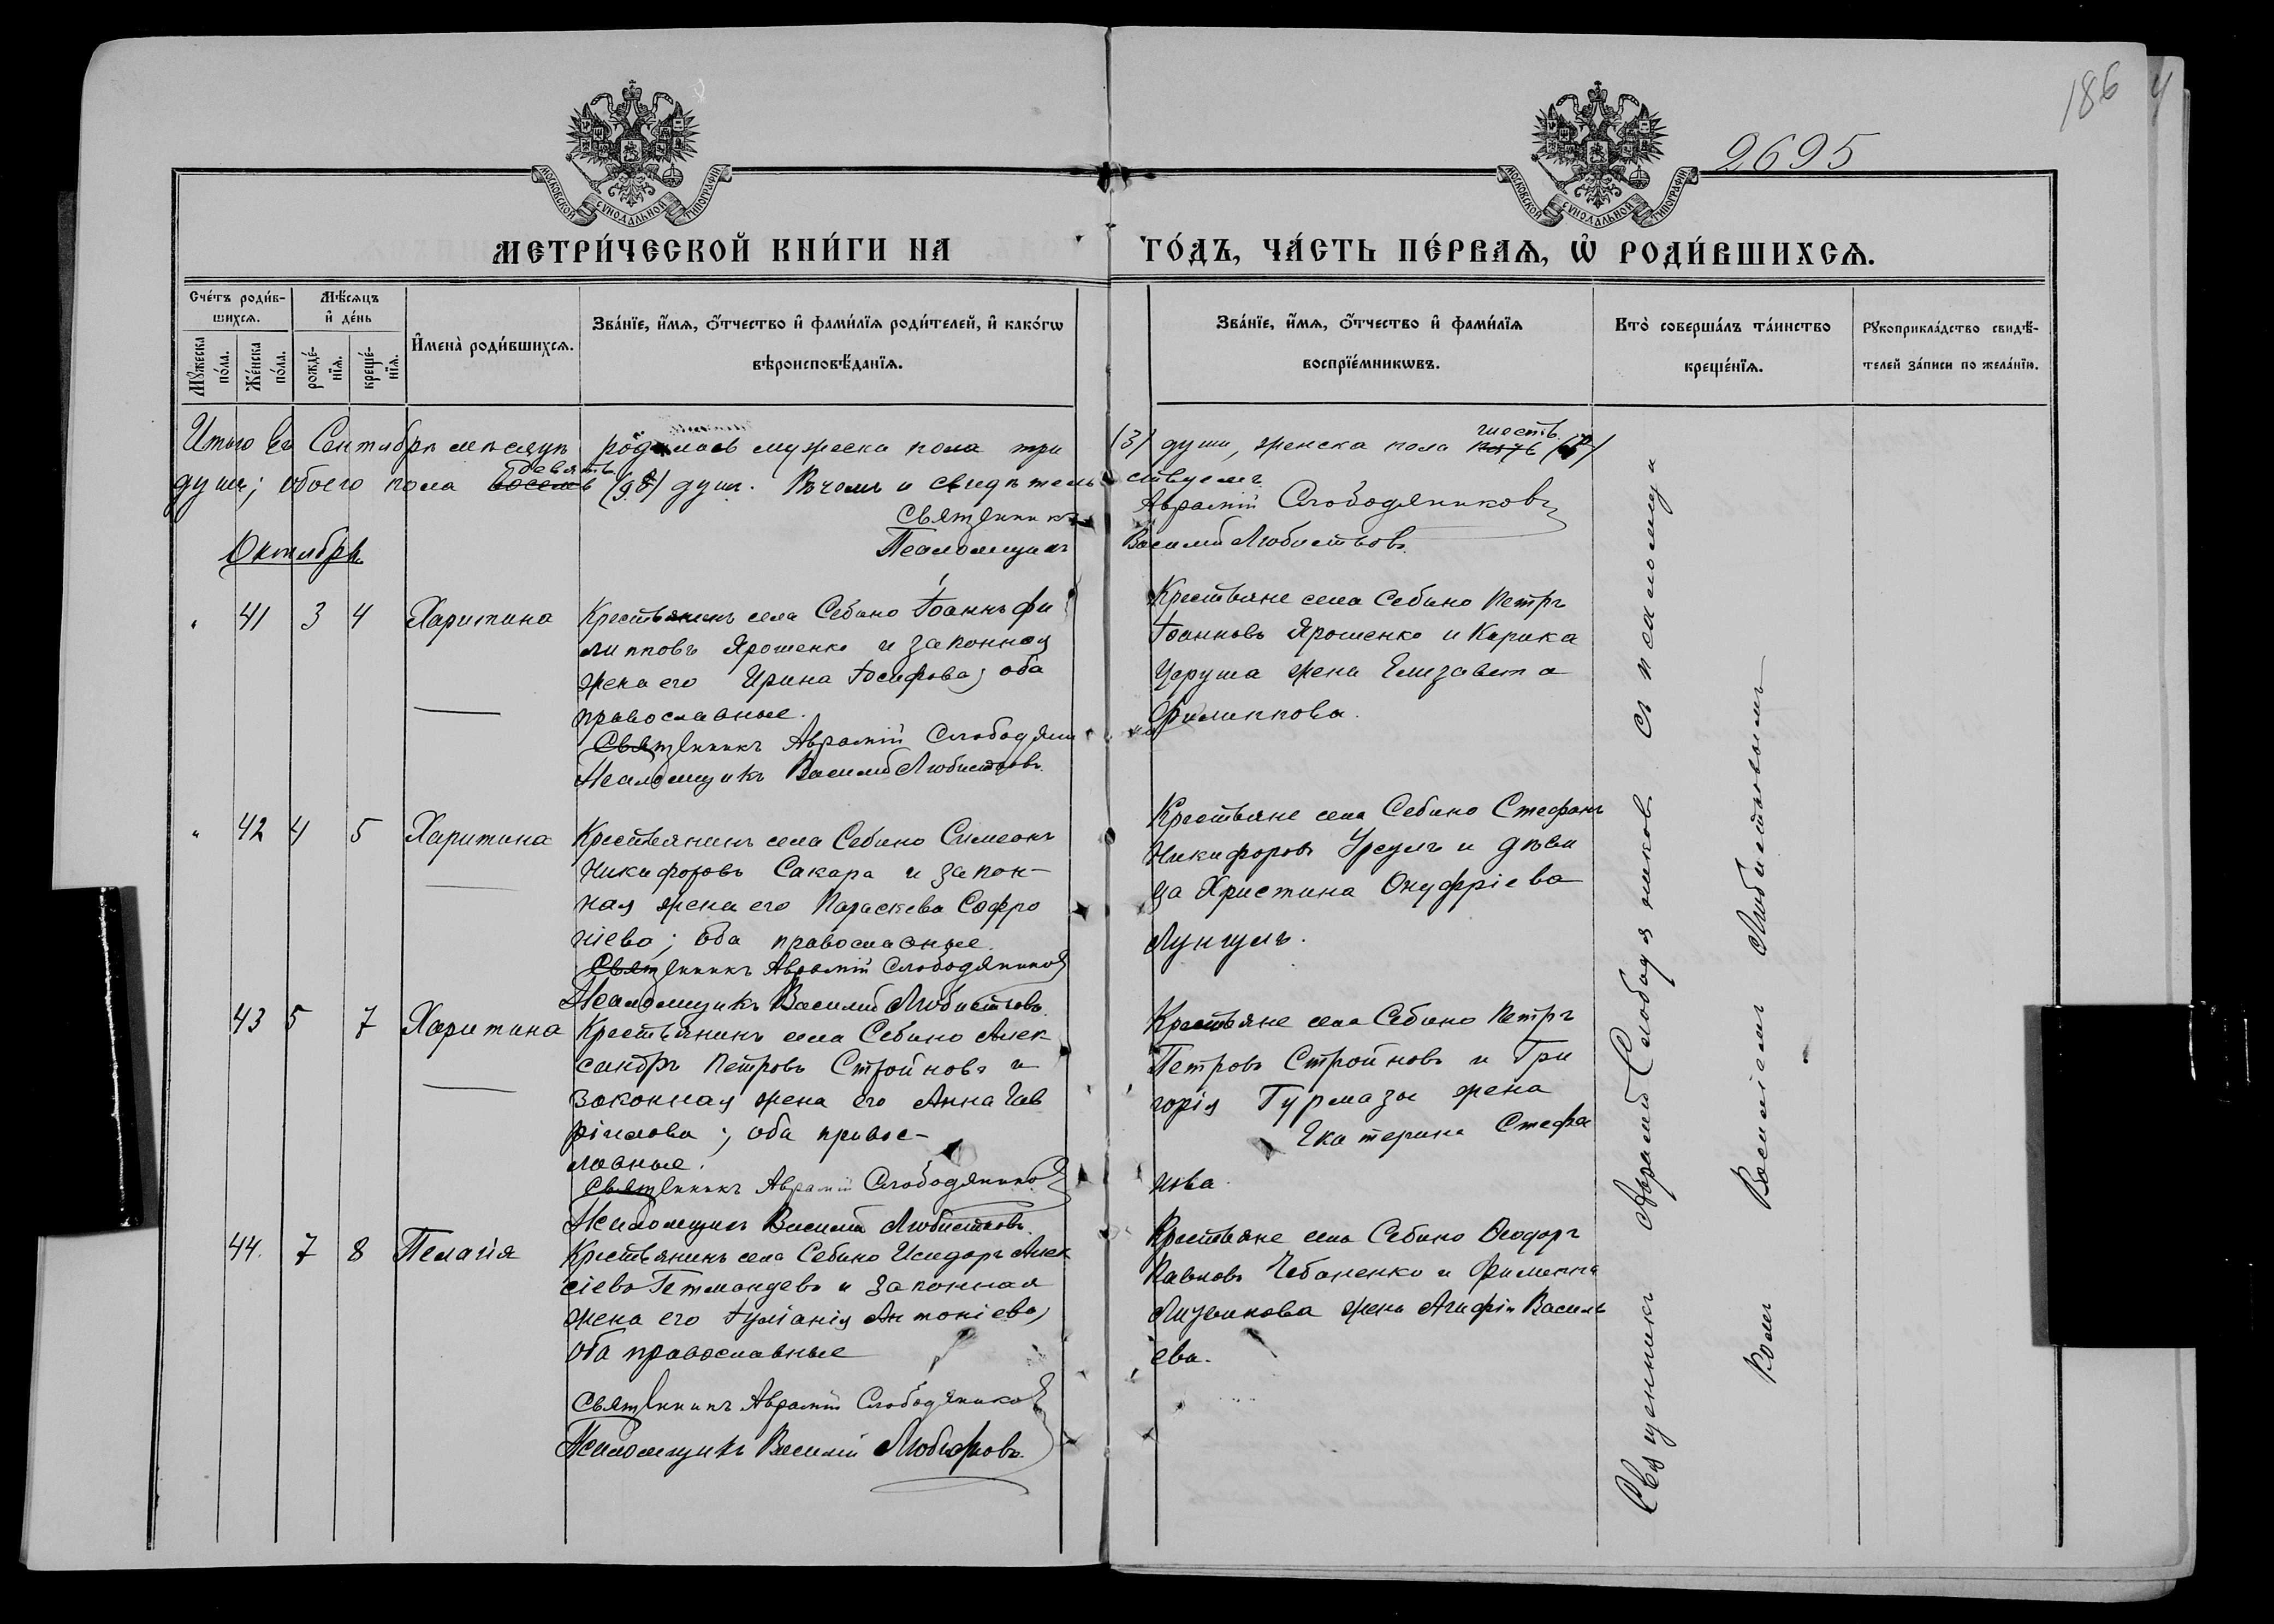 186
2695
МОСКОВСКОЙ СѴНОДАЛЬНОЙ ТИПОГРАФІИ
МОСКОВСКОЙ СѴНОДАЛЬНОЙ ТИПОГРАФІИ
МЕТРИ́ЧЕСКОЙ КНИ́ГИ НА ГО́ДЪ, ЧА́СТЬ ПЕ́РВАѦ, Ѡ҆ РОДИ́ВШИХСѦ.
Сче́тъ роди́в-
шихсѧ.
Мꙋ́жеска по́ла.
Же́нска по́ла.
Мѣ́сѧцъ и҆ де́нь
рожде́-нїѧ.
креще́-нїѧ.
И҆мена̀ роди́вшихсѧ.
Зва́нїе, и҆́мѧ, ѻ҆́тчество и҆ фами́лїѧ роди́телей, и҆ како́гѡ
вѣроисповѣ́данїѧ.
Зва́нїе, и҆́мѧ, ѻ҆́тчество и҆ фами́лїѧ
воспрїе́мникѡвъ.
Кто̀ соверша́лъ та́инство
креще́нїѧ.
Рꙋкоприкла́дство свидѣ́-
телей за́писи по жела́нїю.
Итого въ Сентябрѣ мѣсяцѣ родилось мужеска пола три (3) души, женска пола шесть
душъ; обоего пола восемь девять (9) душъ. Въ чемъ и свидѣтельствуемъ
Священникъ Аврамій Слободяниковъ
Псаломщикъ Василій Любистковъ.
Октябрь
" 41 3 4 Харитина
Крестьянинъ села Себино Іоаннъ Фи
липповъ Ярошенко и законная
жена его Ирина Іосифова; оба
православные.
Священникъ Аврамій Слободяни
Псаломщикъ Василій Любистковъ.
Крестьяне села Себино Петръ
Іоанновъ Ярошенко и Карпа
Церуша жена Елизавета
Филиппова.
" 42 4 5 Харитина
Крестьянинъ села Себино Симеонъ
Никифоровъ Сакара и закон-
ная жена его Параскева Софро
ніева; оба православные.
Священникъ Аврамій Слободяников
Псаломщикъ Василій Любистковъ.
Крестьяне села Себино Стефанъ
Никифоровъ Урсулъ и дѣви
ца Христина Онуфріева
Лунгулъ.
43 5 7 Харитина
Крестьянинъ села Себино Алек
сандръ Петровъ Стройновъ и
законная жена его Анна Гав
ріилова; оба правос-
лавные.
Священникъ Аврамій Слободяников
Псаломщикъ Василій Любистковъ.
Крестьяне села Себино Петръ
Петровъ Стройновъ и Гри
горія Гурмазы жена
Екатерина Стефа
нова
44. 7 8 Пелагія
Крестьянинъ села Себино Исидоръ Алек
сіевъ Гетманцевъ и законная
жена его Іуліанія Антоніева,
оба православные
Священникъ Аврамій Слободяников
Псаломщикъ Василій Любистковъ.
Крестьяне села Себино Ѳеодоръ
Павловъ Чебаненко и Филиппа
жена Агафія Василь
ева.
Священникъ Аврамій Слободяниковъ съ псаломщи
комъ Василіемъ Любистковымъ